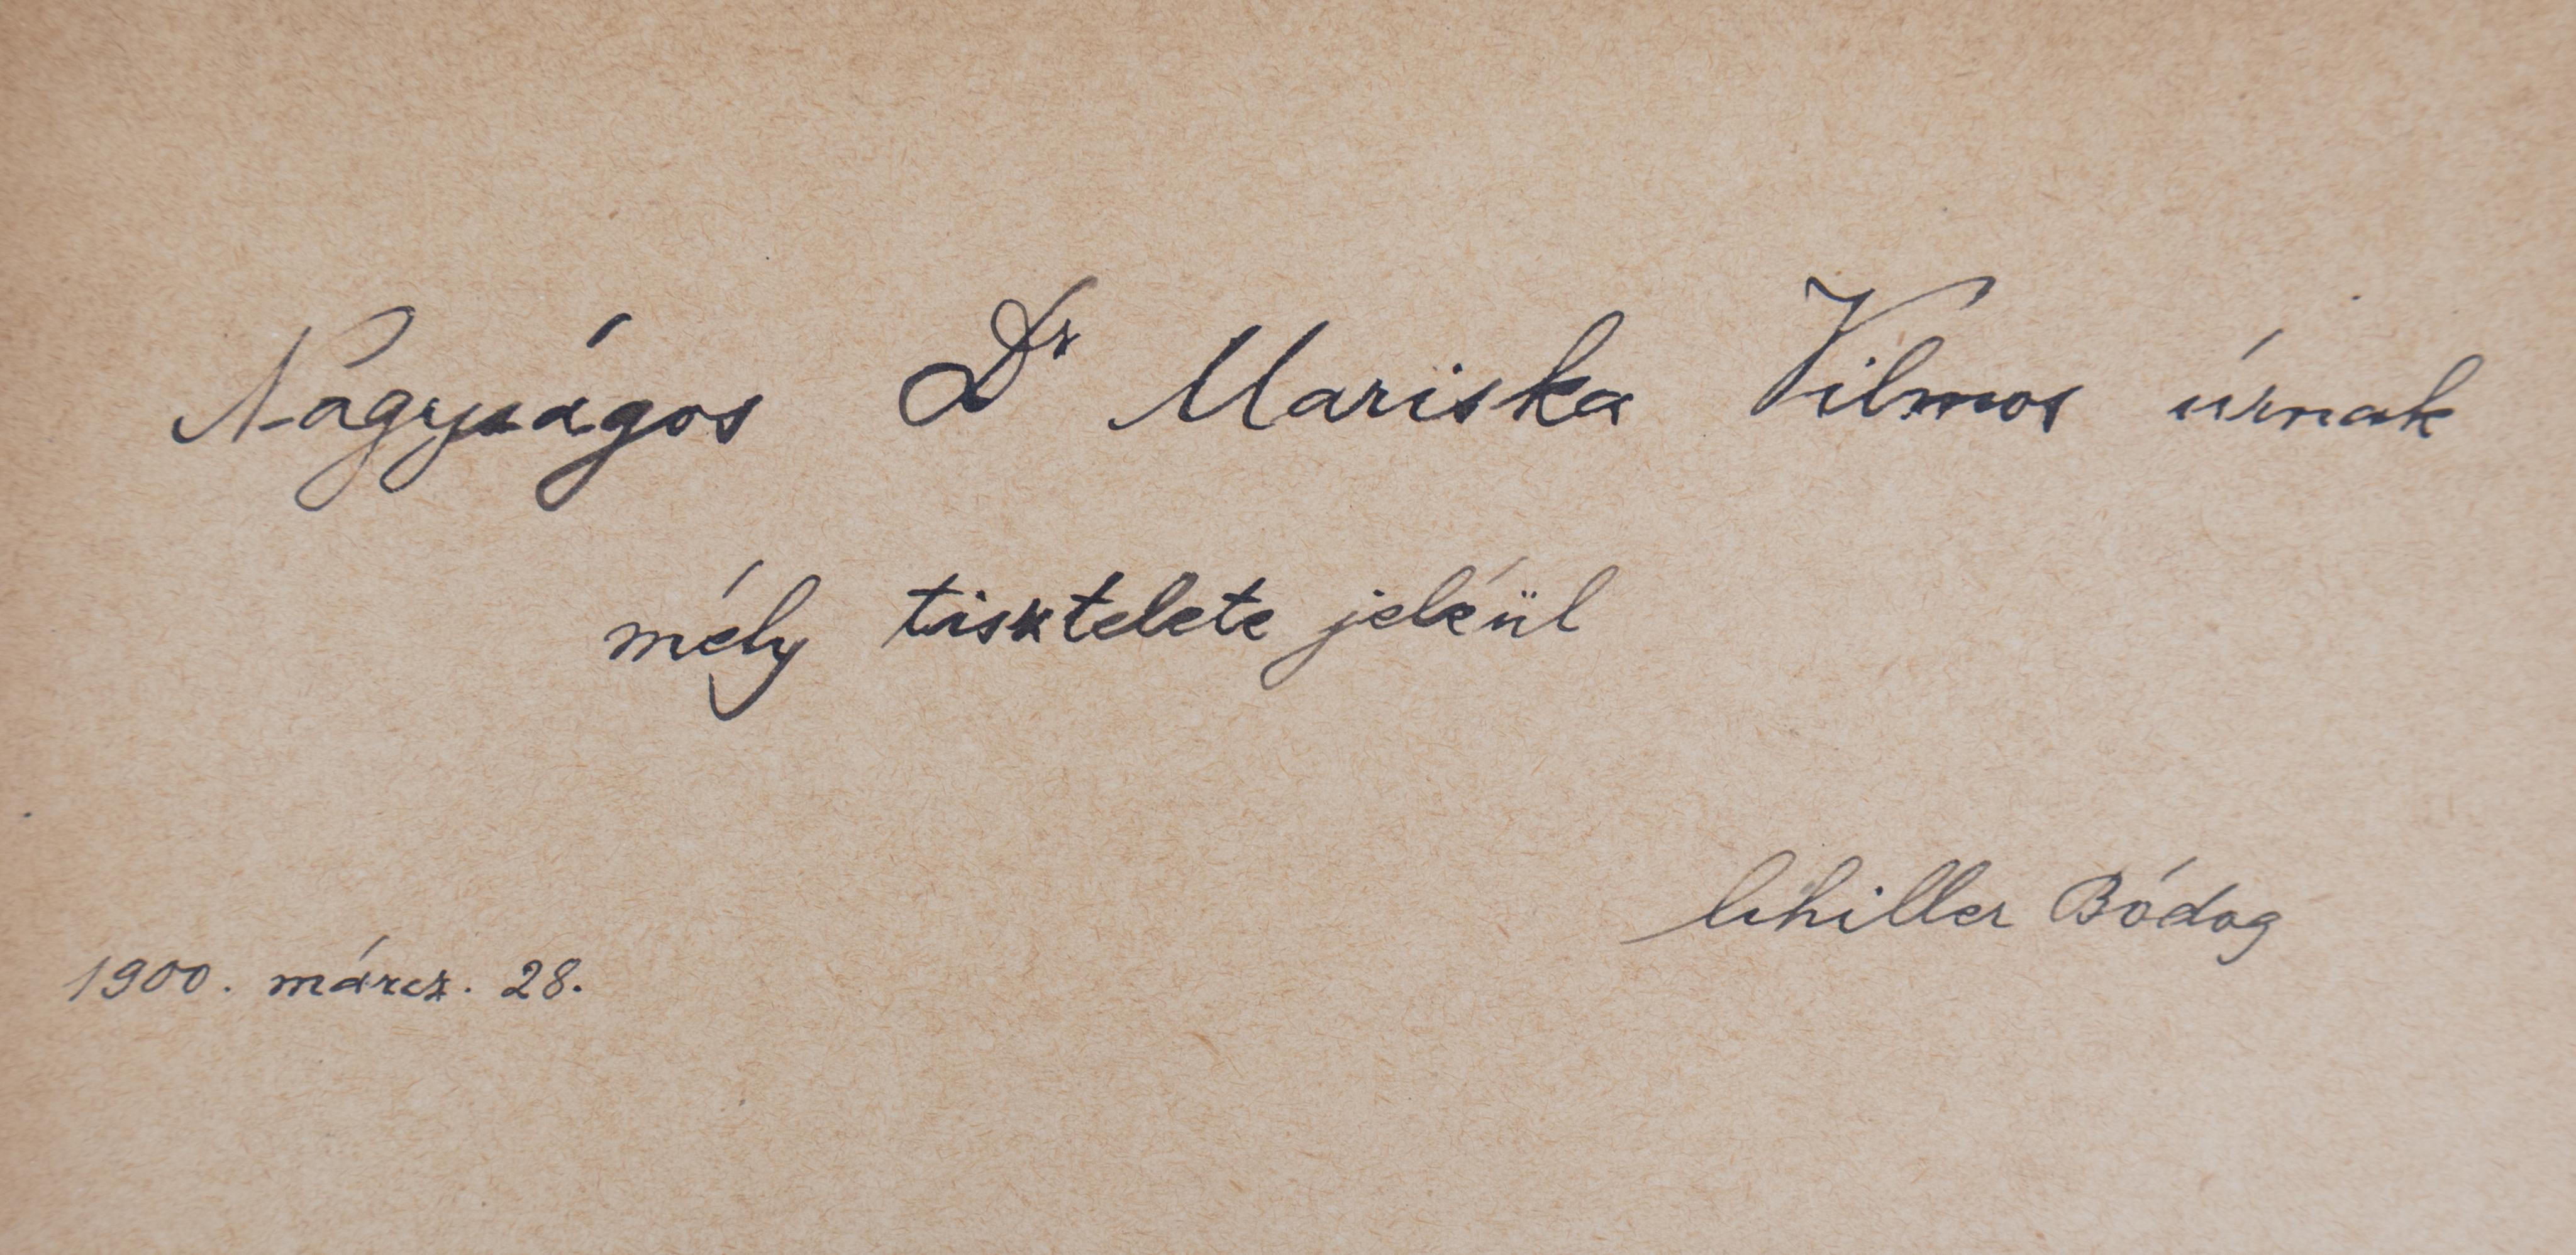 Nagyságos Dr Mariska Vilmos úrnak
mély tisztelete jeléül
Schiller Bódog
1900. márcz. 28.